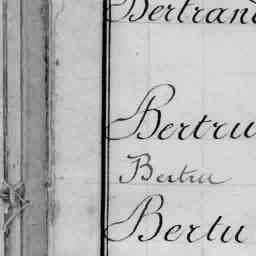 Bertrand
Bertru
Bertru
Bertu